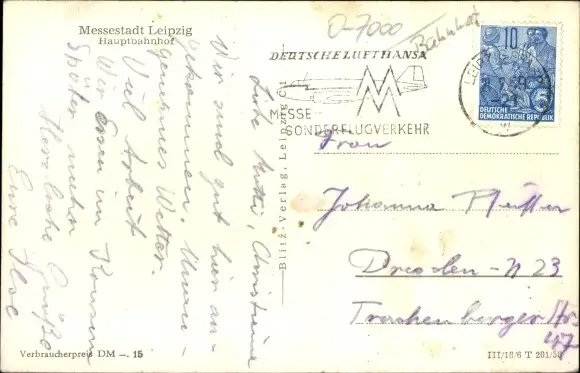 Messestadt Leipzig
Hauptbahnhof
O-7000
Bahnhof
DEUTSCHE LUFTHANSA
MM
MESSE-
SONDERFLUGVERKEHR
10
5
DEUTSCHE
DEMOKRATISCHE REPUBLIK
Liebe Mutti, Christiane
Wir sind gut hier an-
bekommen.
grausames Wetter.
Viel Arbeit
Wir Essen im Konsum
Später mehr
Herzliche Grüße
Eure
Blitz-Verlag, Leipzig C1
Frau
Johanna Pfeiffer
Dresden-N 23
Trachenberger Str.
47
Verbraucherpreis DM —. 15
III/18/6 T 201/56